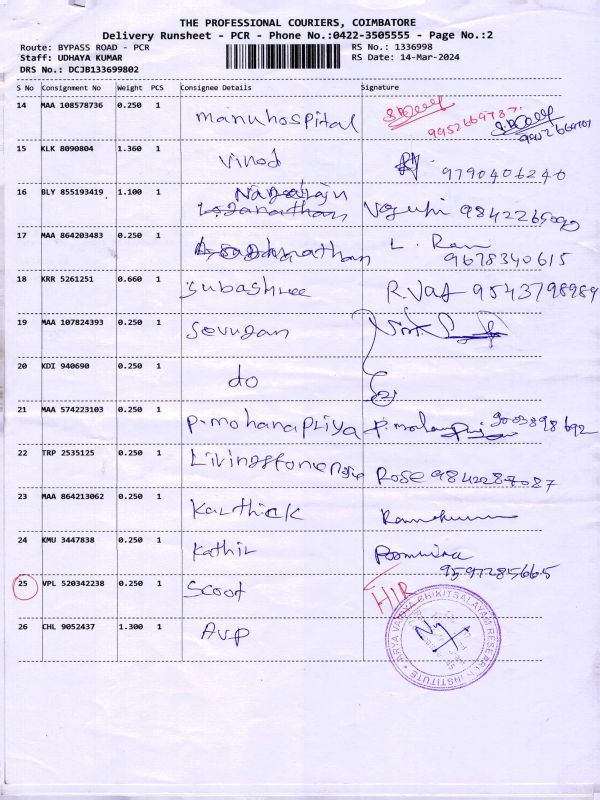 THE PROFESSIONAL COURIERS, COIMBATORE
Delivery Runsheet - PCR - Phone No.:0422-3505555 - Page No.:2
Route: BYPASS ROAD - PCR
RS No.: 1336998
Staff: UDHAYA KUMAR
RS Date: 14-Mar-2024
DRS No.: DCJB133699802
S No Consignment No Weight PCS Consignee Details Signature
14 MAA 108578736 0.250 1 manuhospital
15 KLK 8090804 1.360 1 Vinod 9790406240
16 BLY 855193419 1.100 1 Nagarajan
17 MAA 864203483 0.250 1 L. Ram
9678340615
18 KRR 5261251 0.660 1 Subashree R. 9543798989
19 MAA 107824393 0.250 1 Sevugan
20 KDI 940690 0.250 1 do
21 MAA 574223103 0.250 1 P. mohanapriya
22 TRP 2535125 0.250 1 Rose 9842287087
23 MAA 864213062 0.250 1 Karthick
24 KMU 3447838 0.250 1 Kathir
9597285665
25 VPL 520342238 0.250 1 Scoot H/R
26 CHL 9052437 1.300 1 Avp
ARYA VAIDYA CHIKITSALAYAM RESEARCH INSTITUTE